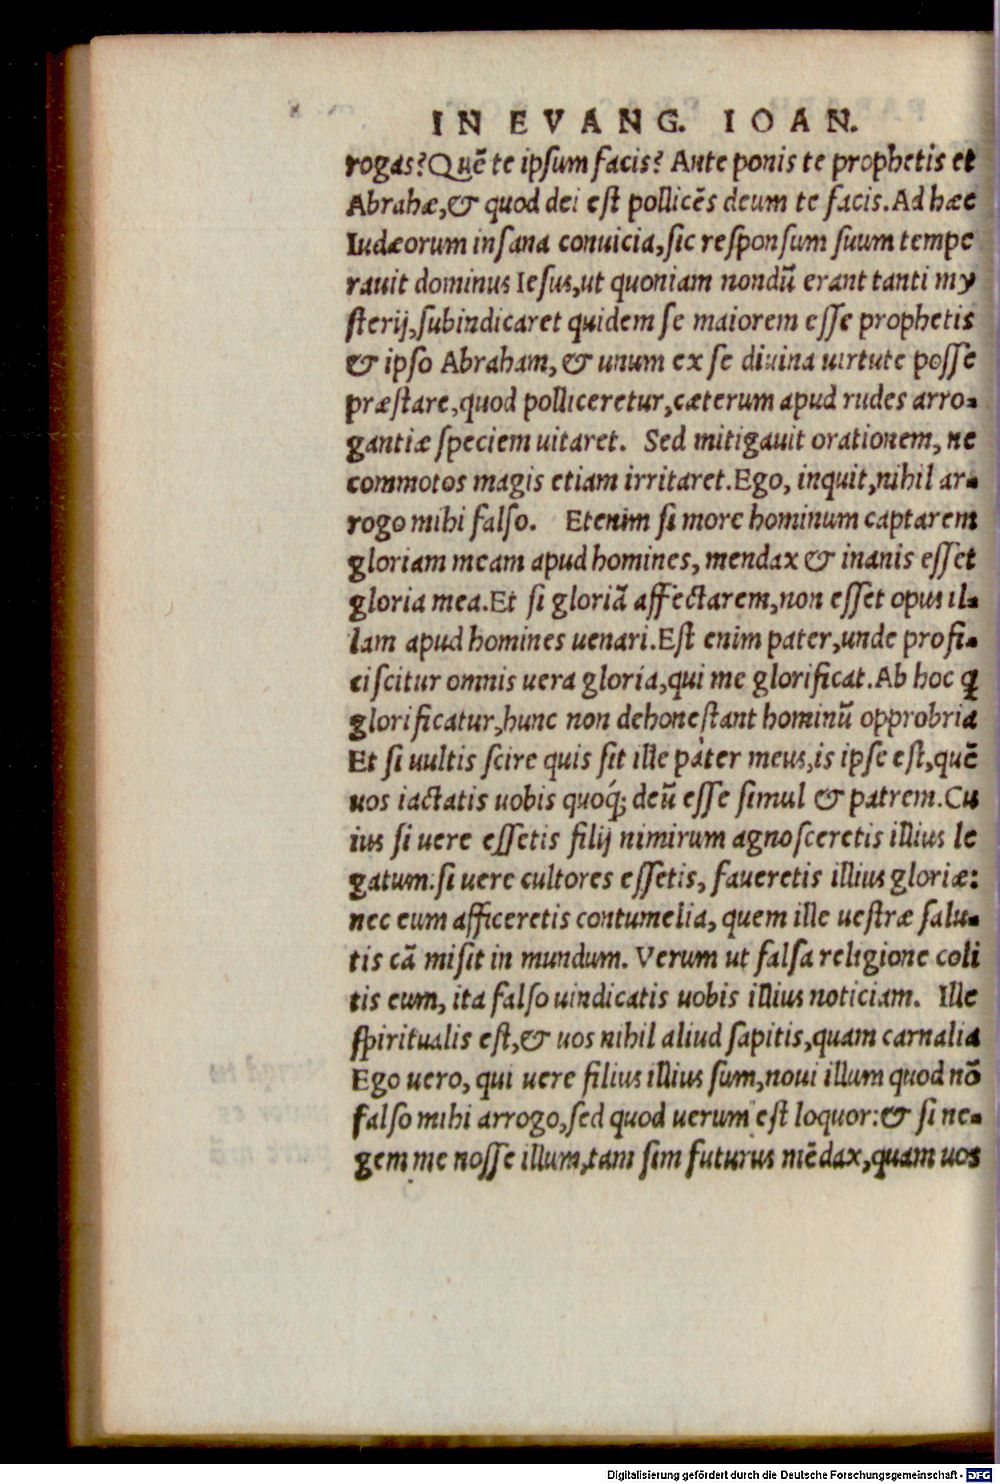 IN EVANG. IOAN.
rogas? Quē te ipsum facis? Ante ponis te prophetis et
Abrahæ, & quod dei est pollicēs deum te facis. Ad hæc
Iudæorum insana conuicia, sic responsum suum tempe
rauit dominus Iesus, ut quoniam nondū erant tanti my
sterij, subindicaret quidem se maiorem esse prophetis
& ipso Abraham, & unum ex se diuina uirtute posse
præstare, quod polliceretur, cæterum apud rudes arro-
gantiæ speciem uitaret. Sed mitigauit orationem, ne
commotos magis etiam irritaret. Ego, inquit, nihil ar-
rogo mihi falso. Etenim si more hominum captarem
gloriam meam apud homines, mendax & inanis esset
gloria mea. Et si gloriā affectarem, non esset opus il-
lam apud homines uenari. Est enim pater, unde profi-
ciscitur omnis uera gloria, qui me glorificat. Ab hoc ꝗ
glorificatur, hunc non dehonestant hominū opprobria
Et si uultis scire quis sit ille pater meus, is ipse est, quē
uos iactatis uobis quoq́; deū esse simul & patrem. Cu
ius si uere essetis filij nimirum agnosceretis illius le
gatum: si uere cultores essetis, faueretis illius gloriæ:
nec eum afficeretis contumelia, quem ille uestræ salu-
tis cā misit in mundum. Verum ut falsa religione coli
tis eum, ita falso uindicatis uobis illius noticiam. Ille
spiritualis est, & uos nihil aliud sapitis, quam carnalia
Ego uero, qui uere filius illius sum, noui illum quod nō
falso mihi arrogo, sed quod uerum est loquor: & si ne-
gem me nosse illum, tam sim futurus mēdax, quam uos
Digitalisierung gefördert durch die Deutsche Forschungsgemeinschaft - DFG